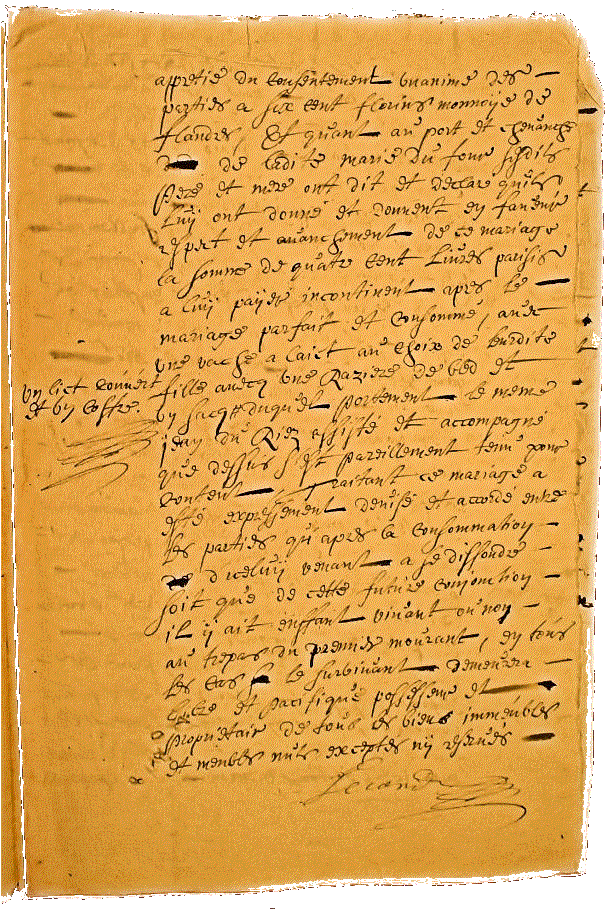 appretié du consentement unanime des
parties a six cent florins monnoije de
flandres, Et quant au port et chevanche
de ladite marie du four susdits
pere et mere ont dit et declare quils
luij ont donné et donnent en faveur
et avanchement de ce mariage
la somme de quatre cent livres parisis
a luij paijer incontinent apres le
mariage parfait et consommé, avec
une vache a laict au choix de
fille avecq une Raziere de bled et
un sacq duquel portement le meme
un lict couvert
et un coffre.
jean du Riez assisté et accompagné
que dessus s'est pareillement tenu pour
content Traitant ce mariage a
esté expressement devisé et accordé entre
les parties qu'apres la consommation
d'iceluij venant a se dissoudre
soit que de cette future conjonction
il ij ait enffant vivant ou non
au trepas du premier mourant, en tous
les cas le survivant demeurera
libre et pacifique possesseur et
proprietair de tous les biens immeubles
et meubles nuls exceptés nij reservés